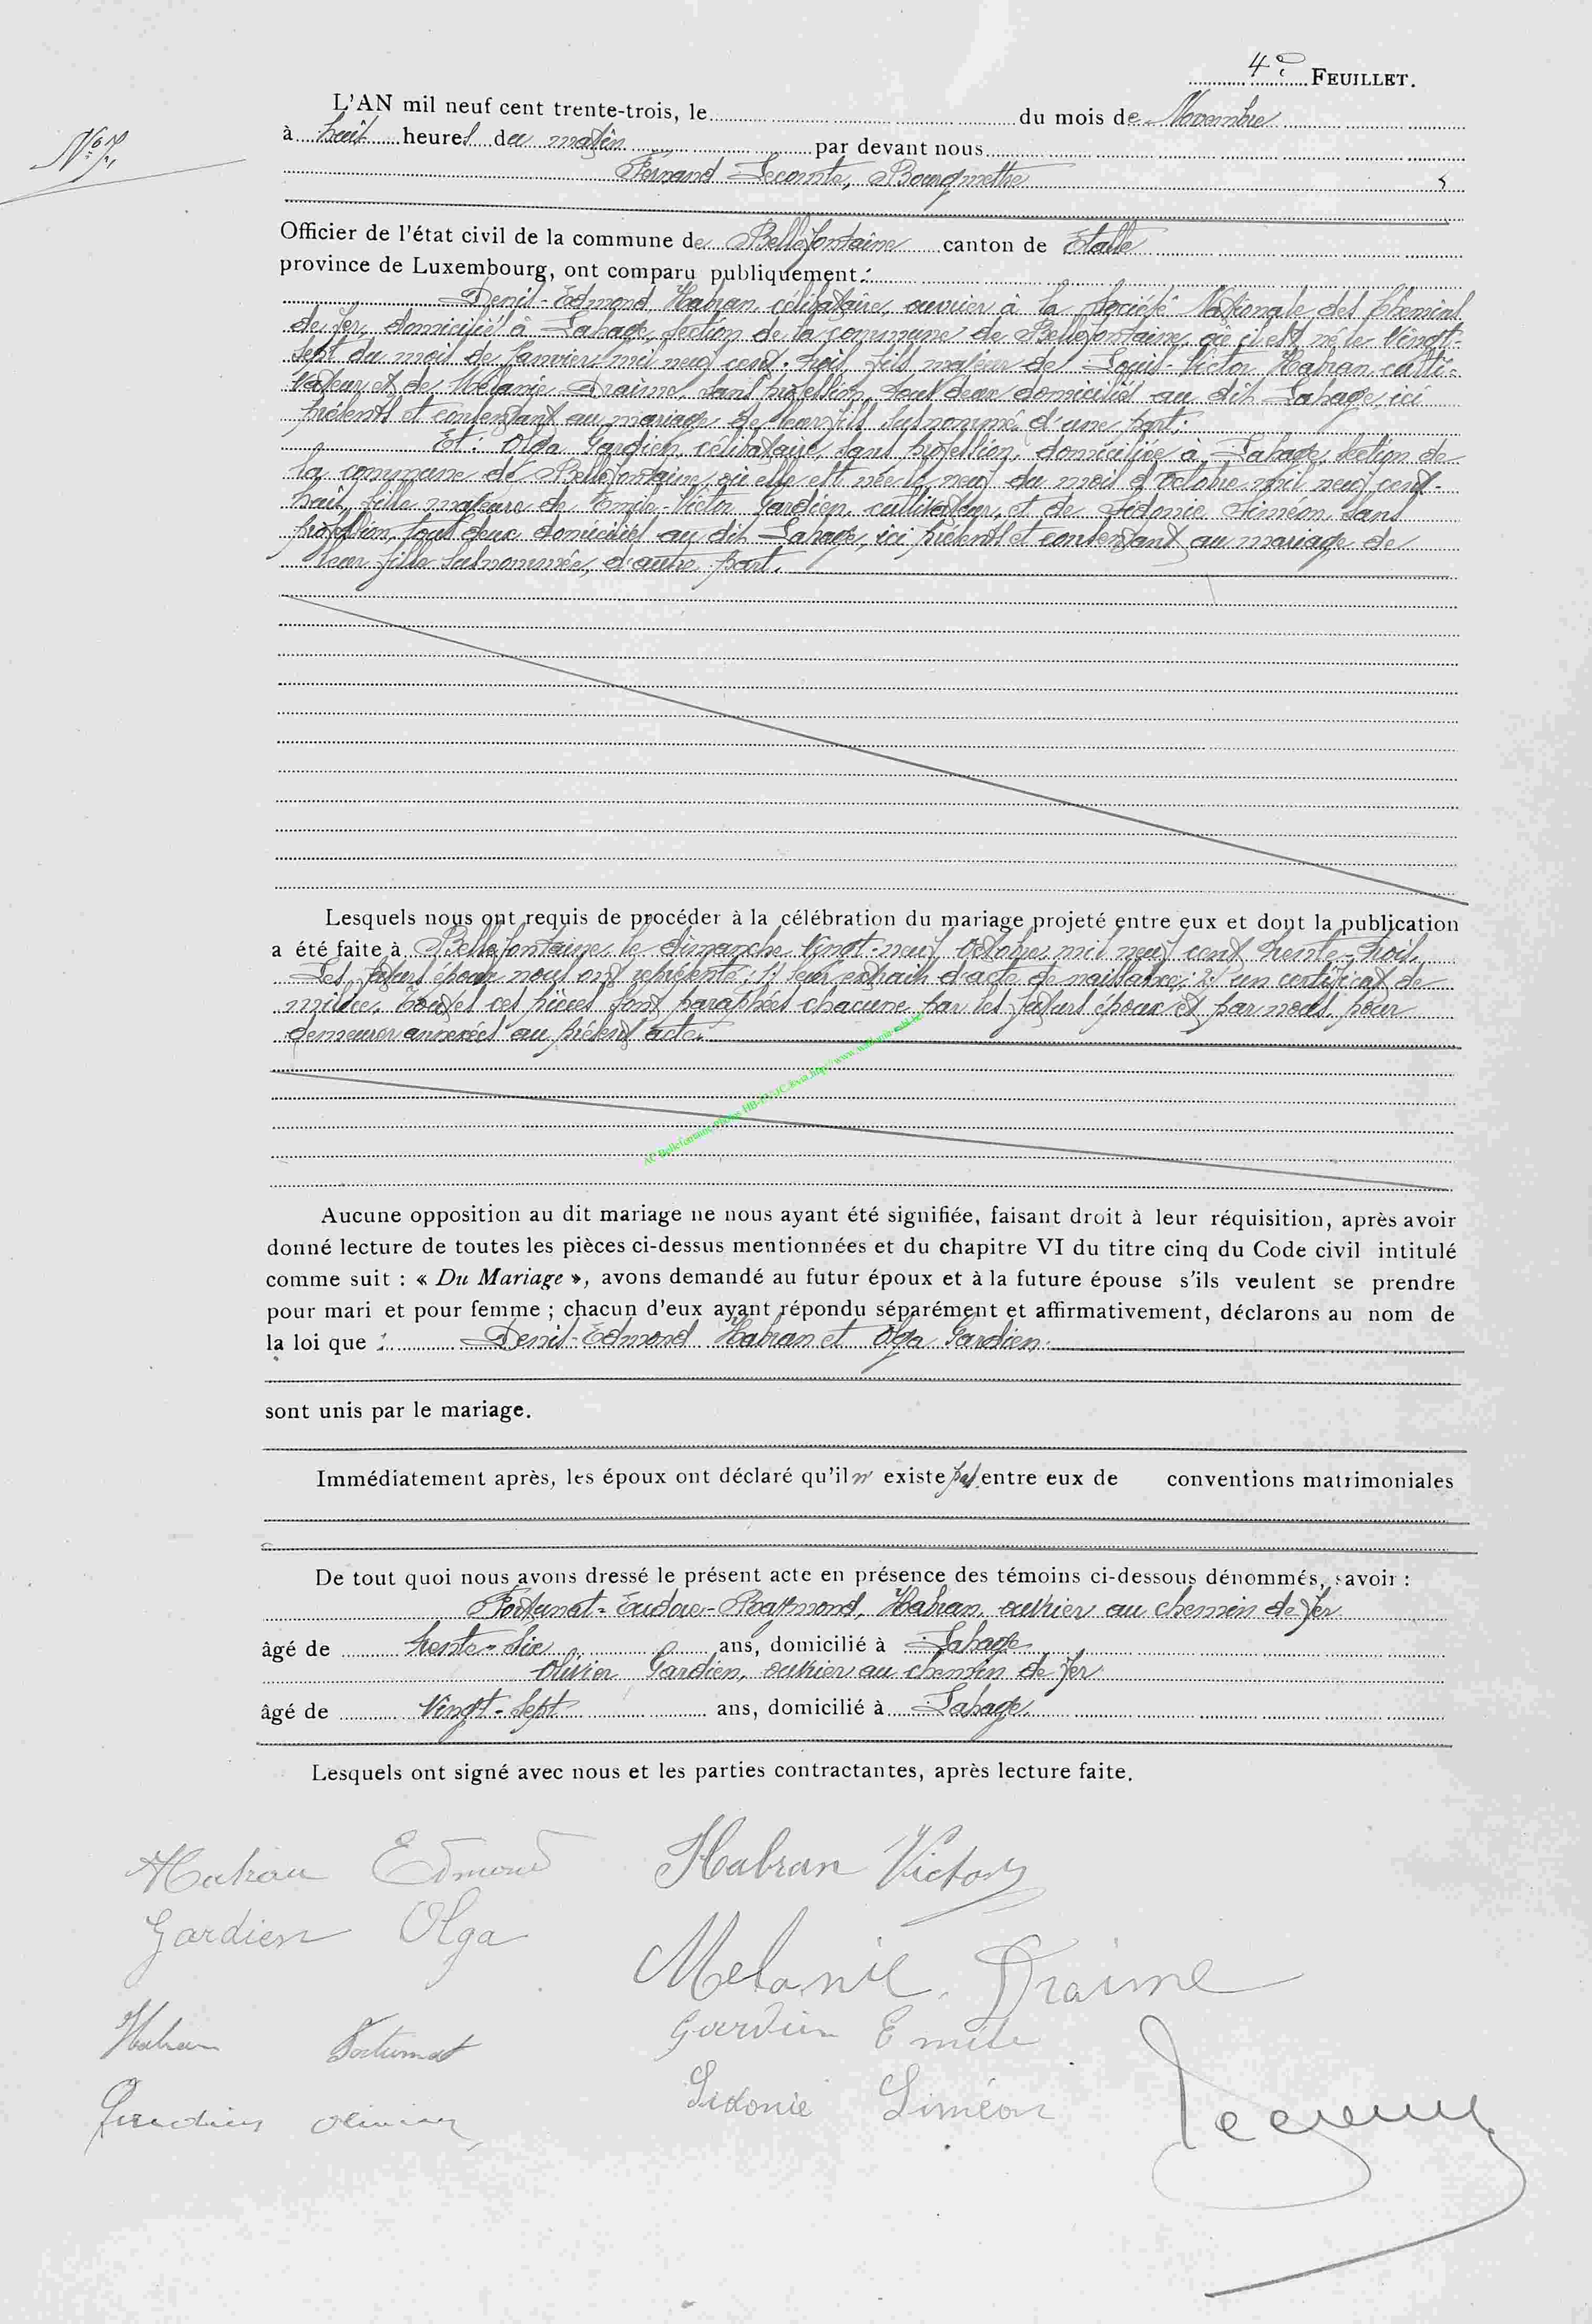 4e FEUILLET.
L'AN mil neuf cent trente-trois, le du mois de Novembre
N° 7.
à huit heures du matin par devant nous
Fernand Lecomte, Bourgmestre
Officier de l'état civil de la commune de Bellefontaine canton de Etalle
province de Luxembourg, ont comparu publiquement :
Denis-Edmond Habran, célibataire, ouvrier à la Société Nationale des Chemins
de fer, domicilié à Lahage, section de la commune de Bellefontaine, où il est né le Vingt-
sept du mois de Janvier mil neuf cent-trois, fils majeur de Louis-Victor Habran, culti-
vateur et de Mélanie Draime, sans profession, tous deux domiciliés au dit Lahage, ici
présents et consentant au mariage de leur fils susnommé, d'une part;
Et: Olga Gardien, célibataire, sans profession, domiciliée à Lahage, section de
la commune de Bellefontaine, où elle est née le neuf du mois d'Octobre mil neuf cent-
huit, fille majeure de Emile-Victor Gardien, cultivateur, et de Sidonie Siméon, sans
profession, tous deux domiciliés au dit Lahage, ici présents et consentant au mariage de
leur fille susnommée, d'autre part.
Lesquels nous ont requis de procéder à la célébration du mariage projeté entre eux et dont la publication
a été faite à Bellefontaine, le dimanche Vingt-neuf Octobre mil neuf cent trente-trois.
Les futurs époux nous ont représenté: 1) leur extrait d'acte de naissance; 2) un certificat de
milice. Toutes ces pièces sont paraphées chacune par les futurs époux et par nous pour
demeurer annexées au présent acte.
AC Bellefontaine
Aucune opposition au dit mariage ne nous ayant été signifiée, faisant droit à leur réquisition, après avoir
donné lecture de toutes les pièces ci-dessus mentionnées et du chapitre VI du titre cinq du Code civil intitulé
comme suit : « Du Mariage », avons demandé au futur époux et à la future épouse s'ils veulent se prendre
pour mari et pour femme ; chacun d'eux ayant répondu séparément et affirmativement, déclarons au nom de
la loi que : Denis-Edmond Habran et Olga Gardien
sont unis par le mariage.
Immédiatement après, les époux ont déclaré qu'il n' existe pas entre eux de conventions matrimoniales
De tout quoi nous avons dressé le présent acte en présence des témoins ci-dessous dénommés, savoir :
Fortunat-Eudore-Raymond, Habran, ouvrier au chemin de fer
âgé de trente-six ans, domicilié à Lahage
Olivier Gardien, ouvrier au chemin de fer
âgé de Vingt-sept ans, domicilié à Lahage
Lesquels ont signé avec nous et les parties contractantes, après lecture faite.
Habran Edmond Habran Victor
Gardien Olga
Melanie Draime
Habran Fortunat Gardien Emile
Gardien Olivier Sidonie Siméon